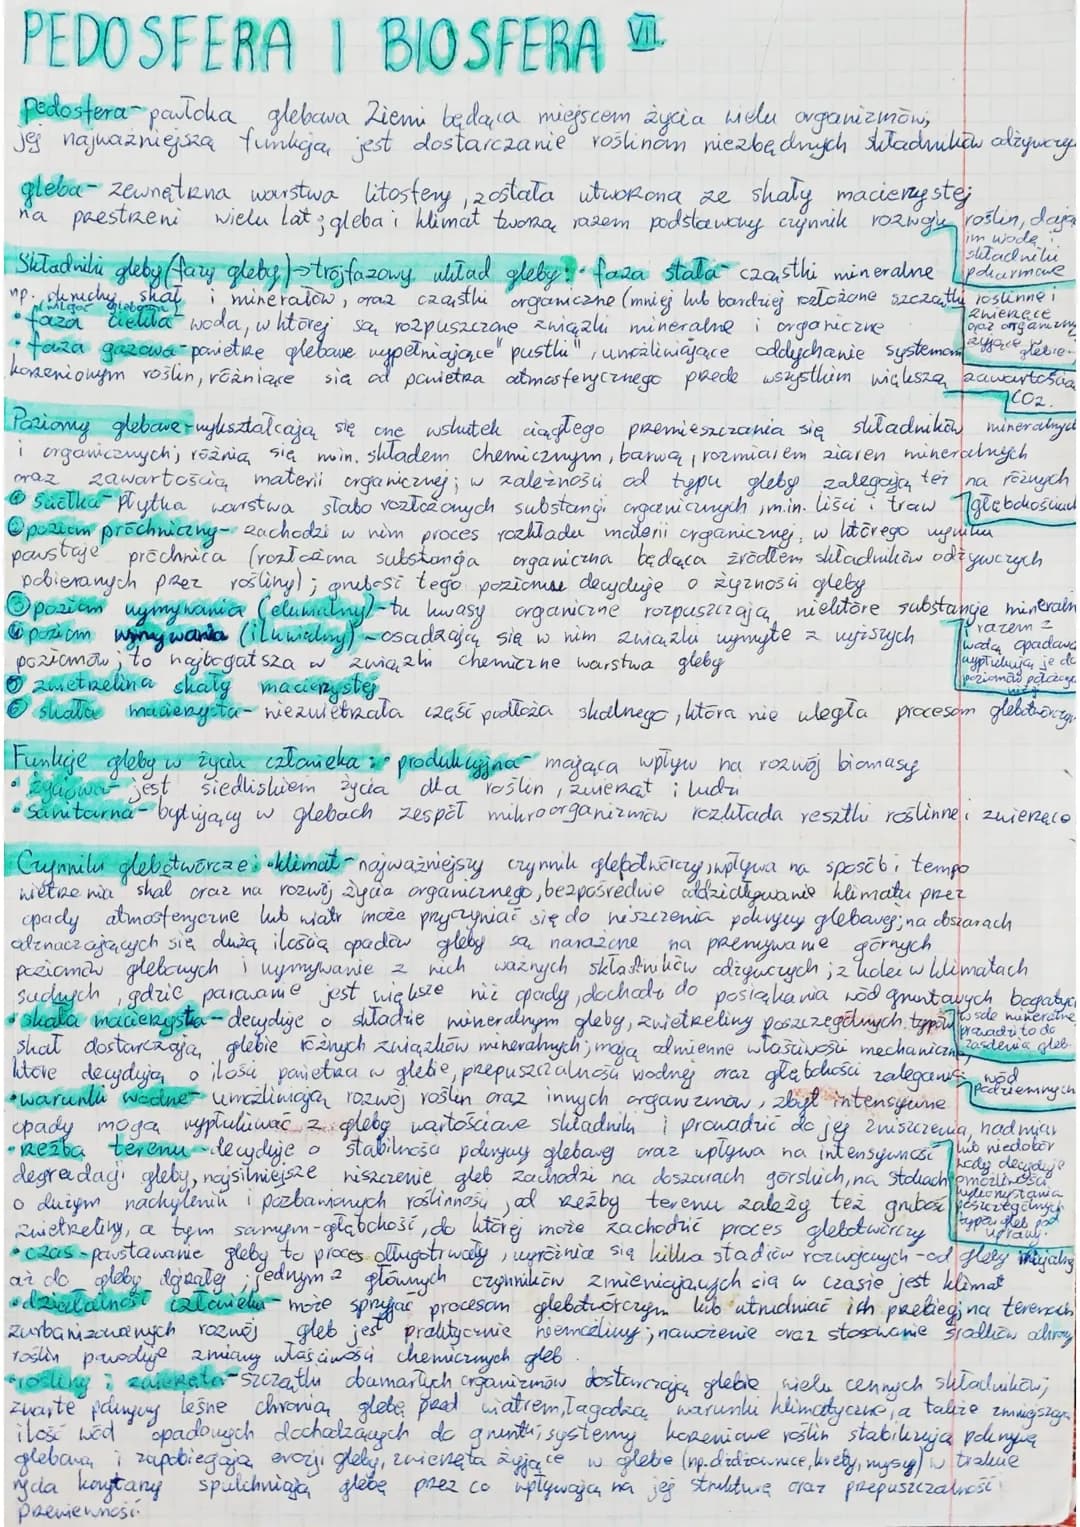 PEDOSFERA I BIOSFERA VII.
pedosfera - powłoka glebowa Ziemi będąca miejscem życia wielu organizmów;
jej najważniejszą funkcją jest dostarczanie roślinom niezbędnych składników odżywczych
gleba - zewnętrzna warstwa litosfery, została utworzona ze skały macierzystej
na przestrzeni wielu lat; gleba i klimat tworzą razem podstawowy czynnik rozwoju roślin, dając
im wodę i
składniki
pokarmowe
Składniki gleby (fazy gleby) → trójfazowy układ gleby: • faza stała - cząstki mineralne
np. okruchy skał i minerałów, oraz cząstki organiczne (mniej lub bardziej rozłożone szczątki roślinne i
zwierzęce
oraz organizmy
żyjące w
glebie)
(wilgoć glebowa)
• faza ciekła - woda, w której są rozpuszczone związki mineralne i organiczne
• faza gazowa - powietrze glebowe wypełniające "pustki", umożliwiające oddychanie systemom
korzeniowym roślin, różniące się od powietrza atmosferycznego przede wszystkim większą zawartością
CO2.
Poziomy glebowe - wykształcają się one wskutek ciągłego przemieszczania się składników mineralnych
i organicznych; różnią się m.in. składem chemicznym, barwą, rozmiarem ziaren mineralnych
oraz zawartością materii organicznej; w zależności od typu gleby zalegają też na różnych
głębokościach
① ściółka - płytka warstwa słabo rozłożonych substancji organicznych, m.in. liści i traw
② poziom próchniczny - zachodzi w nim proces rozkładu materii organicznej, w którego wyniku
powstaje próchnica (rozłożona substancja organiczna będąca źródłem składników odżywczych
pobieranych przez rośliny); grubość tego poziomu decyduje o żyzności gleby
③ poziom wymywania (eluwialny) - tu kwasy organiczne rozpuszczają niektóre substancje mineralne
i razem z
wodą opadową
wypłukują je do
poziomów położonych
niżej
④ poziom wmywania (iluwialny) - osadzają się w nim związki wymyte z wyższych
poziomów; to najbogatsza w związki chemiczne warstwa gleby
⑤ zwietrzelina skały macierzystej
⑥ skała macierzysta - niezwietrzała część podłoża skalnego, która nie uległa procesom glebotwórczym
Funkcje gleby w życiu człowieka: • produkcyjna - mająca wpływ na rozwój biomasy
• życiowa - jest siedliskiem życia dla roślin, zwierząt i ludzi
• sanitarna - bytujący w glebach zespół mikroorganizmów rozkłada resztki roślinne i zwierzęce
Czynniki glebotwórcze: • klimat - najważniejszy czynnik glebotwórczy, wpływa na sposób i tempo
wietrzenia skał oraz na rozwój życia organicznego, bezpośrednie oddziaływanie klimatu przez
opady atmosferyczne lub wiatr może przyczyniać się do niszczenia pokrywy glebowej; na obszarach
odznaczających się dużą ilością opadów gleby są narażone na przemywanie górnych
poziomów glebowych i wymywanie z nich ważnych składników odżywczych; z kolei w klimatach
suchych, gdzie parowanie jest większe niż opady, dochodzi do posiąkania wód gruntowych bogatych
w sole mineralne,
prowadzi to do
zasolenia gleb
• skała macierzysta - decyduje o składzie mineralnym gleby, zwietrzeliny poszczególnych typów
skał dostarczają glebie różnych związków mineralnych; mają odmienne właściwości mechaniczne,
które decydują o ilości powietrza w glebie, przepuszczalności wodnej oraz głębokości zalegania wód
podziemnych
• warunki wodne - umożliwiają rozwój roślin oraz innych organizmów, zbyt intensywne
opady mogą wypłukiwać z gleby wartościowe składniki i prowadzić do jej zniszczenia, nadmiar
lub niedobór
wody decyduje
o możliwości
wykorzystania
poszczególnych
typów gleb pod
uprawy.
• rzeźba terenu - decyduje o stabilności pokrywy glebowej oraz wpływa na intensywność
degradacji gleby, najsilniejsze niszczenie gleb zachodzi na obszarach górskich, na stokach
o dużym nachyleniu i pozbawionych roślinności, od rzeźby terenu zależy też grubość
zwietrzeliny, a tym samym - głębokość, do której może zachodzić proces glebotwórczy
• czas - powstawanie gleby to proces długotrwały, wyróżnia się kilka stadiów rozwojowych - od gleby inicjalnej
aż do gleby dojrzałej; jednym z głównych czynników zmieniających się w czasie jest klimat
• działalność człowieka - może sprzyjać procesom glebotwórczym lub utrudniać ich przebieg; na terenach
zurbanizowanych rozwój gleb jest praktycznie niemożliwy; nawożenie oraz stosowanie środków ochrony
roślin powoduje zmiany właściwości chemicznych gleb.
• rośliny i zwierzęta - szczątki obumarłych organizmów dostarczają glebie wielu cennych składników;
zwarte pokrywy leśne chronią glebę przed wiatrem, łagodzą warunki klimatyczne, a także zmniejszają
ilość wód opadowych dochodzących do gruntu; systemy korzeniowe roślin stabilizują pokrywę
glebową i zapobiegają erozji gleby, zwierzęta żyjące w glebie (np. dżdżownice, krety, myszy) w trakcie
rycia korytarzy spulchniają glebę przez co wpływają na jej strukturę oraz przepuszczalność i
przewiewność.